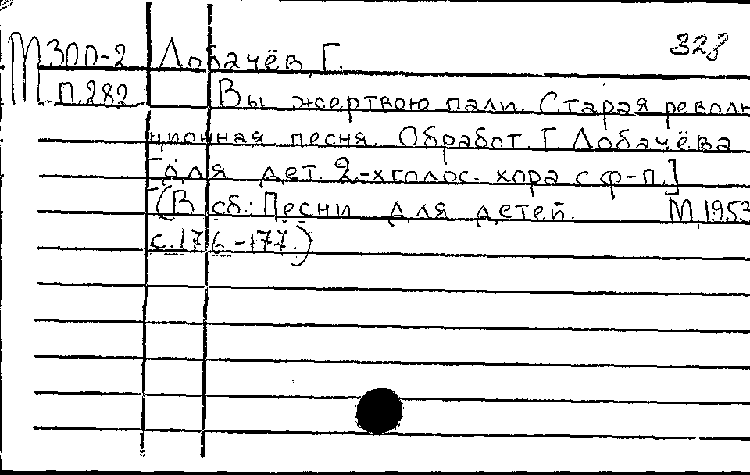 М 300-2 Лобачёв Г. 323
П.282 Вы жертвою пали. Старая револю
ционная песня. Обработ. Г. Лобачёва
[для дет. 2-хголос. хора с ф-п.]
(В сб.: Песни для детей. М, 1953
с. 176-177.)